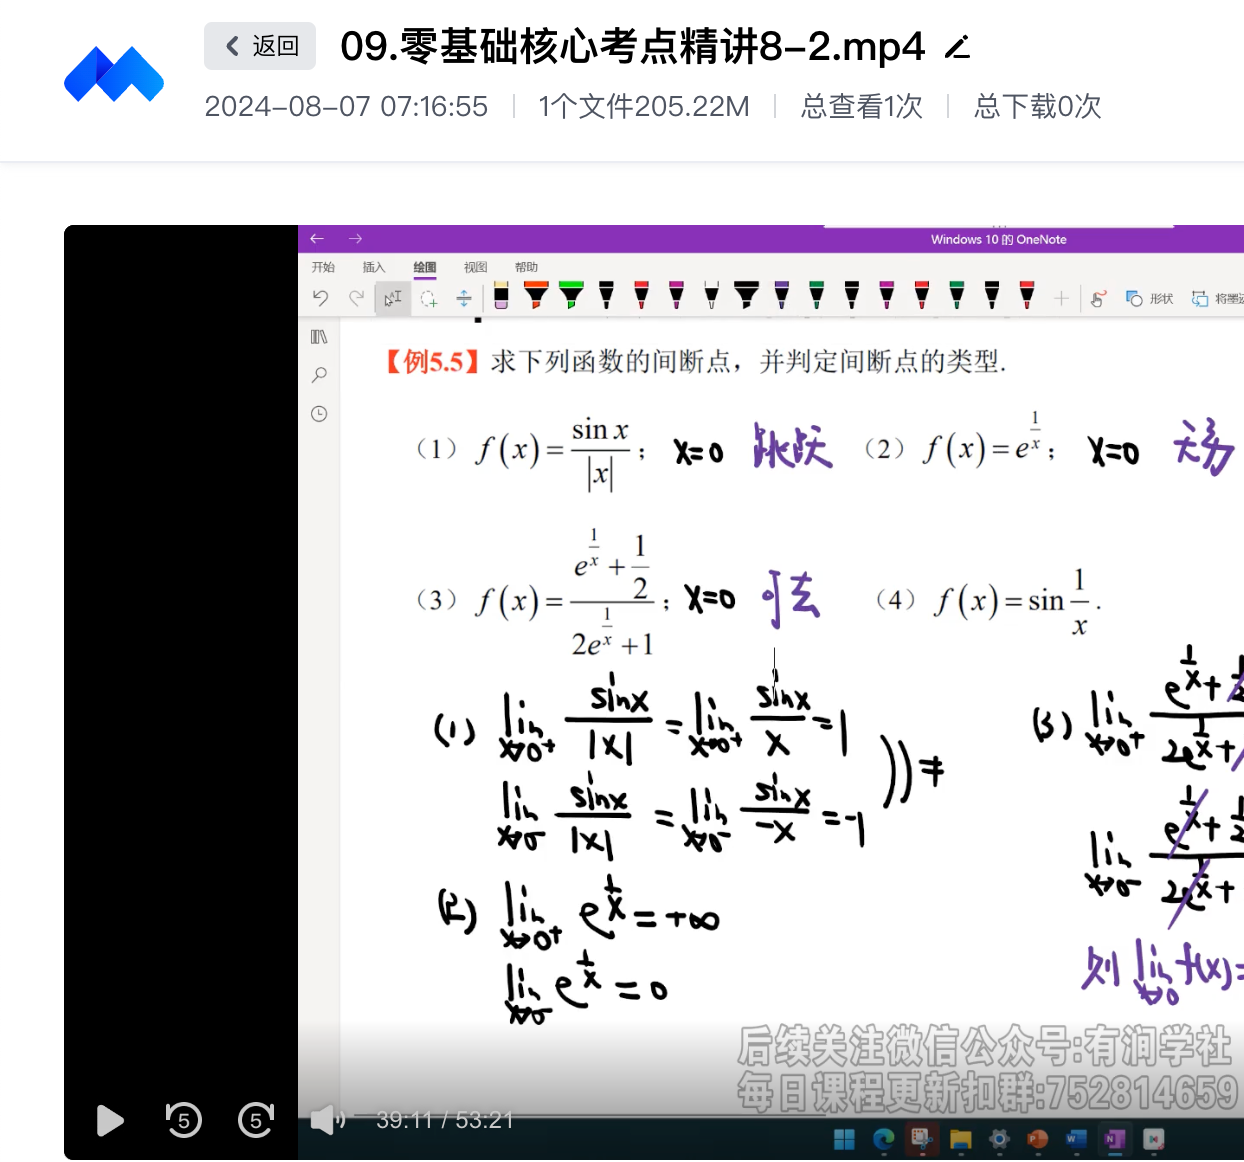 返回 09.零基础核心考点精讲8-2.mp4
2024-08-07 07:16:55 1个文件205.22M 总查看1次 总下载0次
Windows 10 的 OneNote
开始 插入 绘图 视图 帮助
形状 将墨
【例5.5】求下列函数的间断点，并判定间断点的类型.
（1）f(x)=sin x/|x|； x=0 跳跃 （2）f(x)=e^(1/x)； x=0 无穷
（3）f(x)=(e^(1/x)+1/2)/(2e^(1/x)+1)； x=0 可去 （4）f(x)=sin 1/x.
(1) lim x→0⁺ sinx/|x| = lim x→0⁺ sinx/x = 1
lim x→0⁻ sinx/|x| = lim x→0⁻ sinx/-x = -1 ≠
(2) lim x→0⁺ e^(1/x) = +∞
lim x→0⁻ e^(1/x) = 0
(3) lim x→0⁺ e^(1/x)+1/2 / 2e^(1/x)+
lim x→0⁻ e^(1/x)+1/2 / 2e^(1/x)+
则 lim x→0 f(x)=
后续关注微信公众号:有润学社
每日课程更新扣群:752814659
5 5 39:11 / 53:21